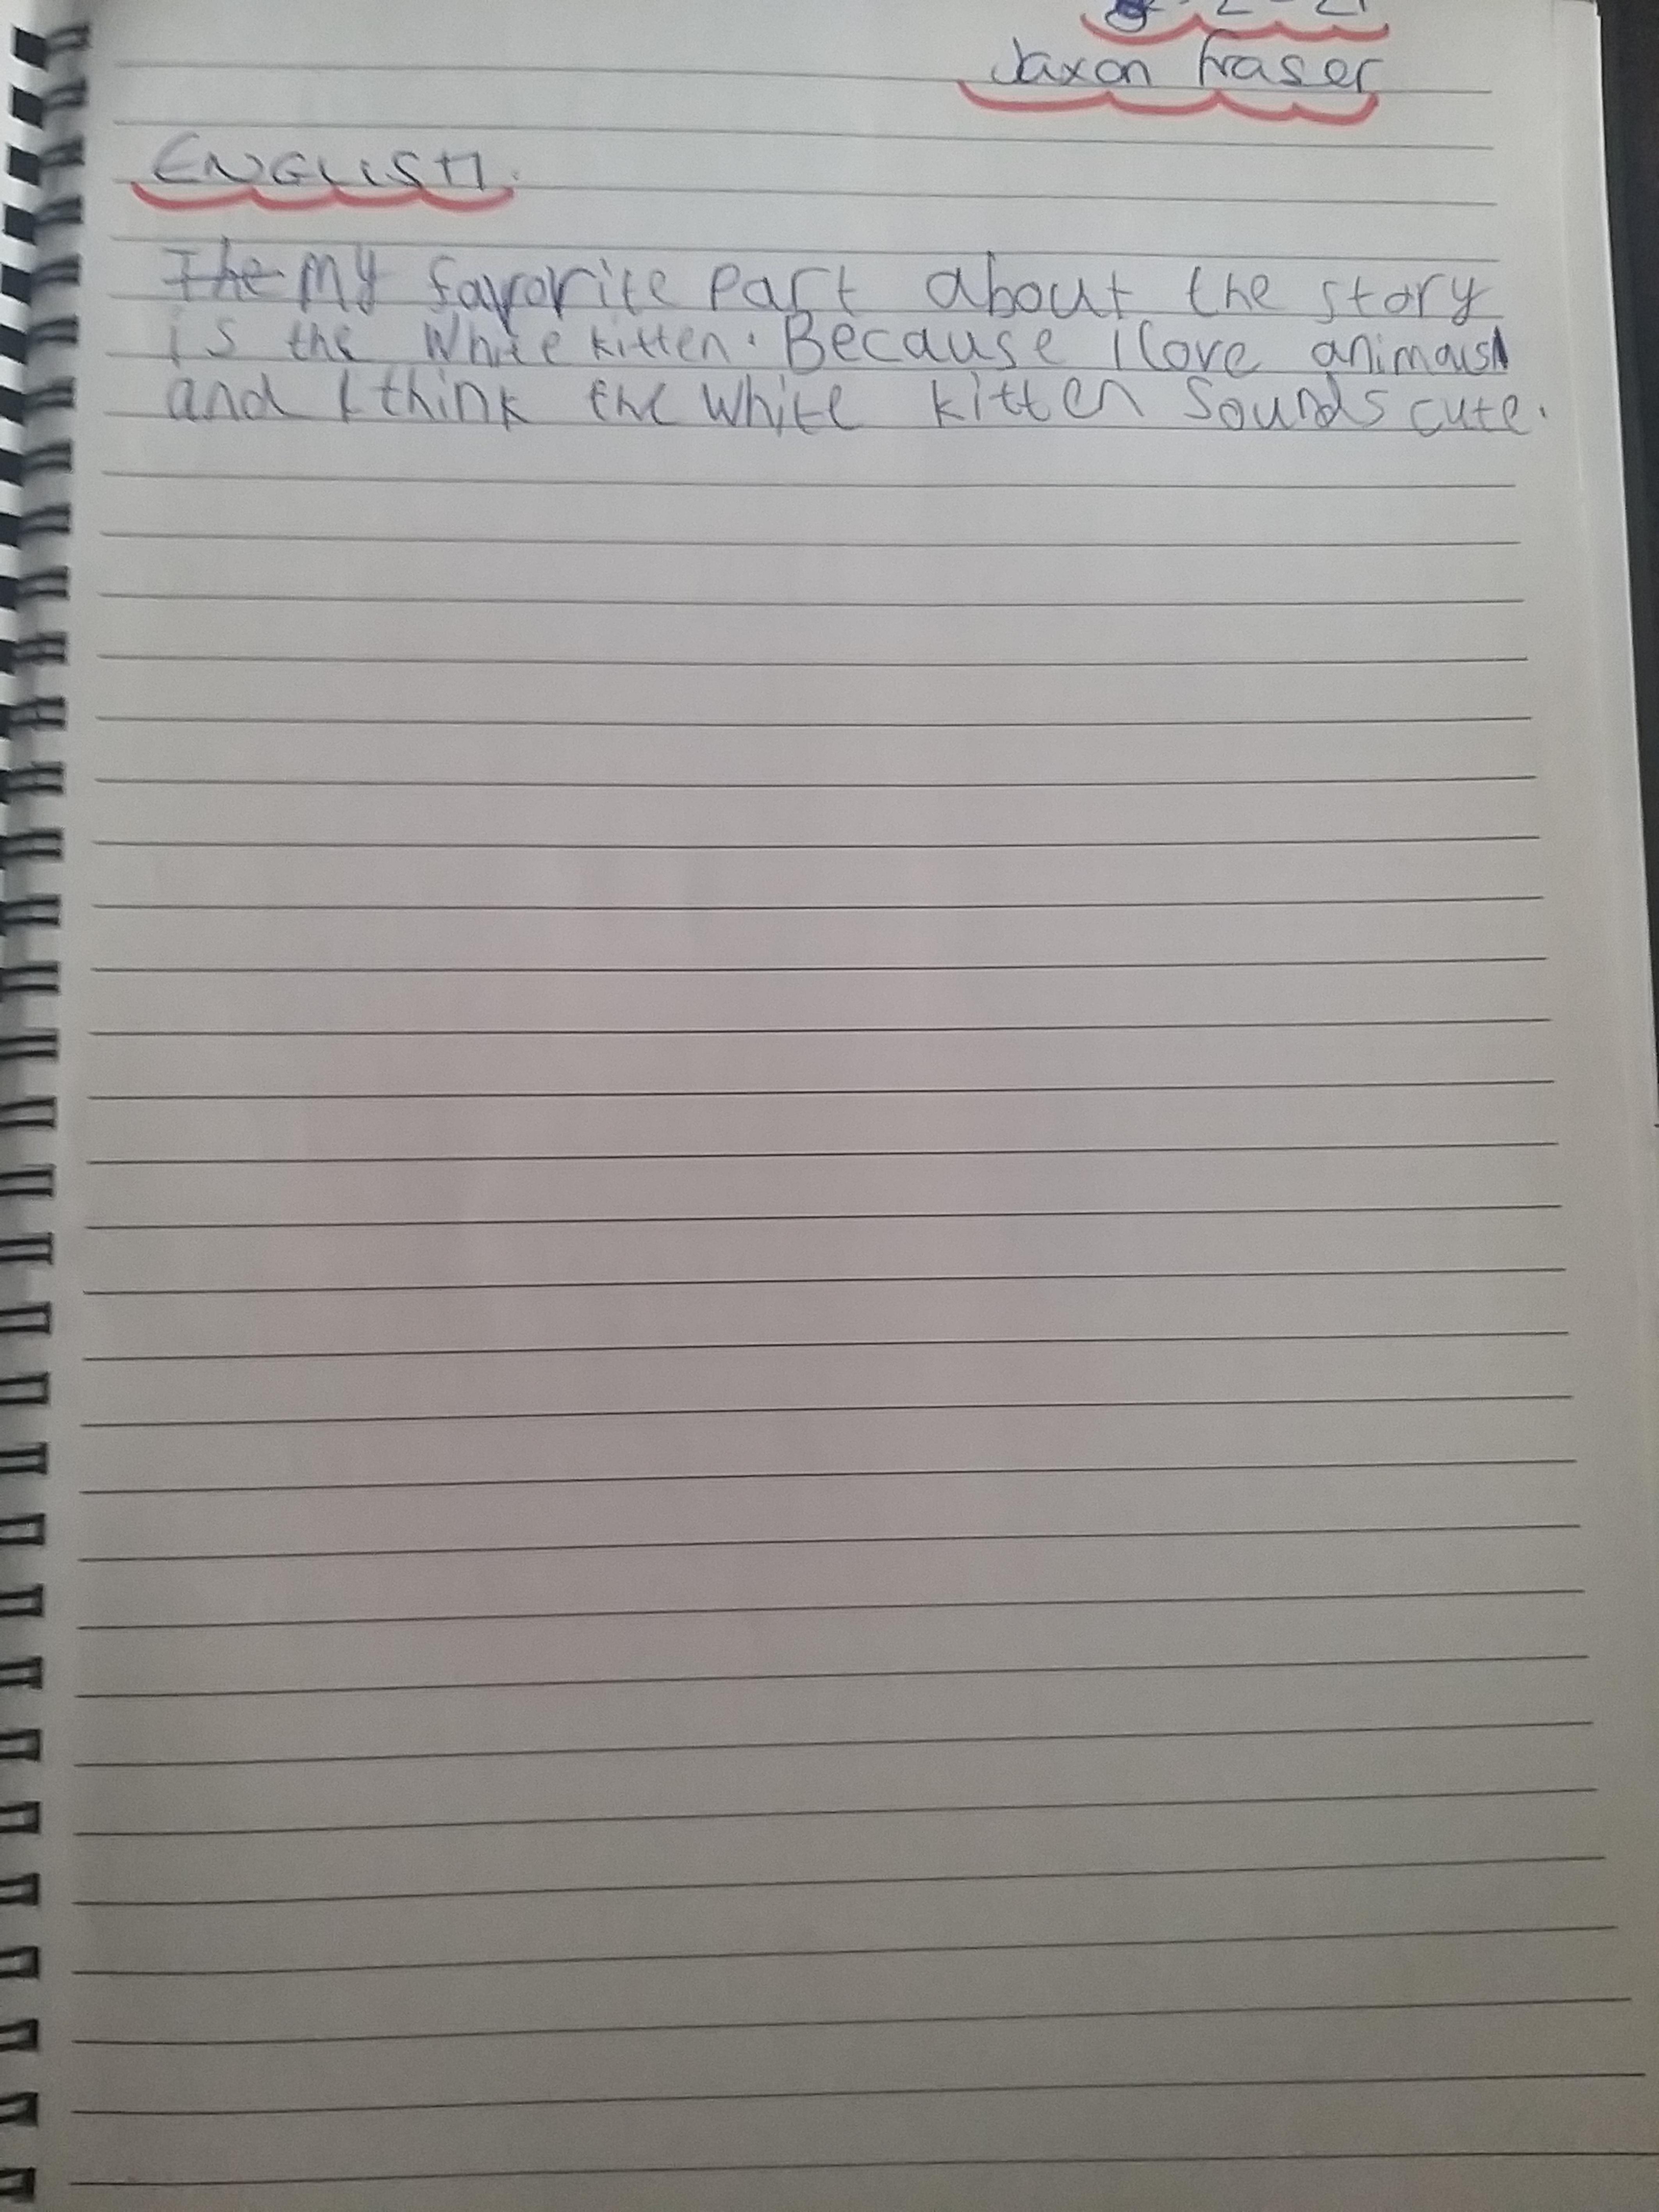 2 - 21
Jaxon Fraser
ENGLISH.
The My favorite part about the story
is the white kitten. Because I love animals
and I think the white kitten sounds cute.